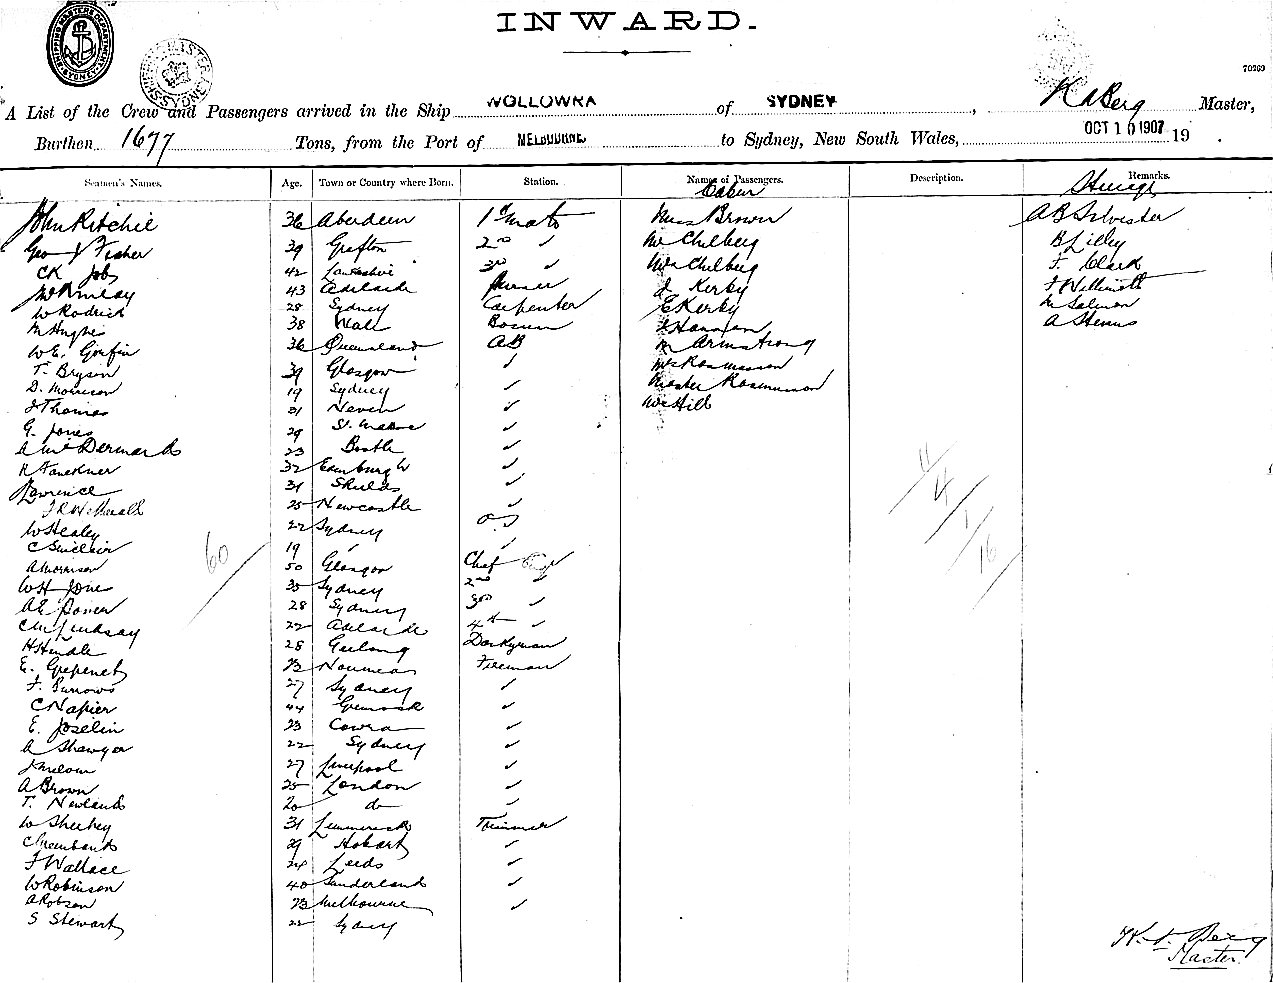 INWARD.
SHIPPING MASTERS DEPARTMENT SYDNEY
SYDNEY
70269
A List of the Crew and Passengers arrived in the Ship WOLLOWRA of SYDNEY, Berg Master,
Burthen 1677 Tons, from the Port of MELBOURNE to Sydney, New South Wales, OCT 10 1907 19 .
Seamen's Names. Age. Town or Country where Born. Station. Names of Passengers. Description. Remarks.
John Ritchie 36 Aberdeen 1st Mate Brown AB Silvester
Geo Fisher 39 Grafton 2nd ✓ Mr Chelberg B Lilley
CK Job 42 3rd ✓ Mrs Chelberg F. Clark
43 Adelaide J Kerby
W Rodrick 28 Sydney Carpenter E Kerby M Salmon
M Hughes 38 Bosun A Stevens
W.E. 36 Queensland AB M Armstrong
T. Bryson 39 Glasgow ✓ Mrs Rasmusson
D. Morrison 19 Sydney ✓ Master Rasmusson
J Thomas 21 ✓ Mrs Hill
G. Jones 29 ✓
A McDermard 23 Bootle ✓
R Faulkner 32 Edinburgh ✓
Lawrence 31 Shields ✓
25 Newcastle ✓
W Healey 22 Sydney OS
C Sinclair 19 ✓
A Morrison 50 Glasgow Chief Eng
WH Jones 35 Sydney 2nd ✓
AE Power 28 Sydney 3rd ✓
C M Lindsay 22 Adelaide 4th ✓
H Hindle 28 Geelong Donkyman
E. 23 Noumea Fireman
F. Burrows 27 Sydney ✓
C Napier 44 Greenock ✓
E. Joselin 23 Cowra ✓
A Shawyer 22 Sydney ✓
27 Liverpool ✓
A Brown 25 London ✓
T. Newland 20 do ✓
W Sheehey 31 Limmerick Trimmer
29 Hobart ✓
J Wallace 24 Leeds ✓
W Robinson 40 Sunderland ✓
A Robson 23 Melbourne ✓
S Stewart 22 Sydney
60
11
4
1
16
Berg
Master.